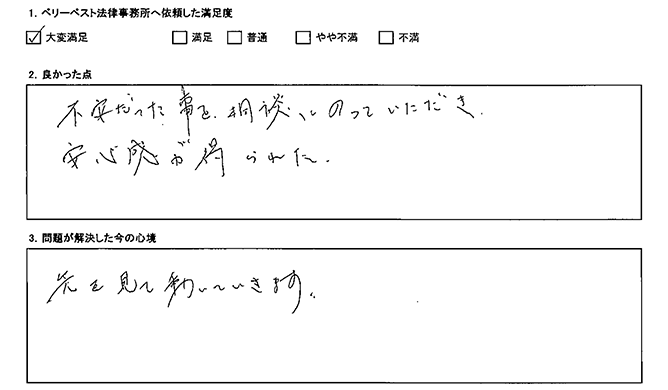 1. ベリーベスト法律事務所へ依頼した満足度
☑ 大変満足 □ 満足 □ 普通 □ やや不満 □ 不満
2. 良かった点
不安だった事を、相談にのっていただき、
安心感が得られた。
3. 問題が解決した今の心境
先を見て動いていきます。